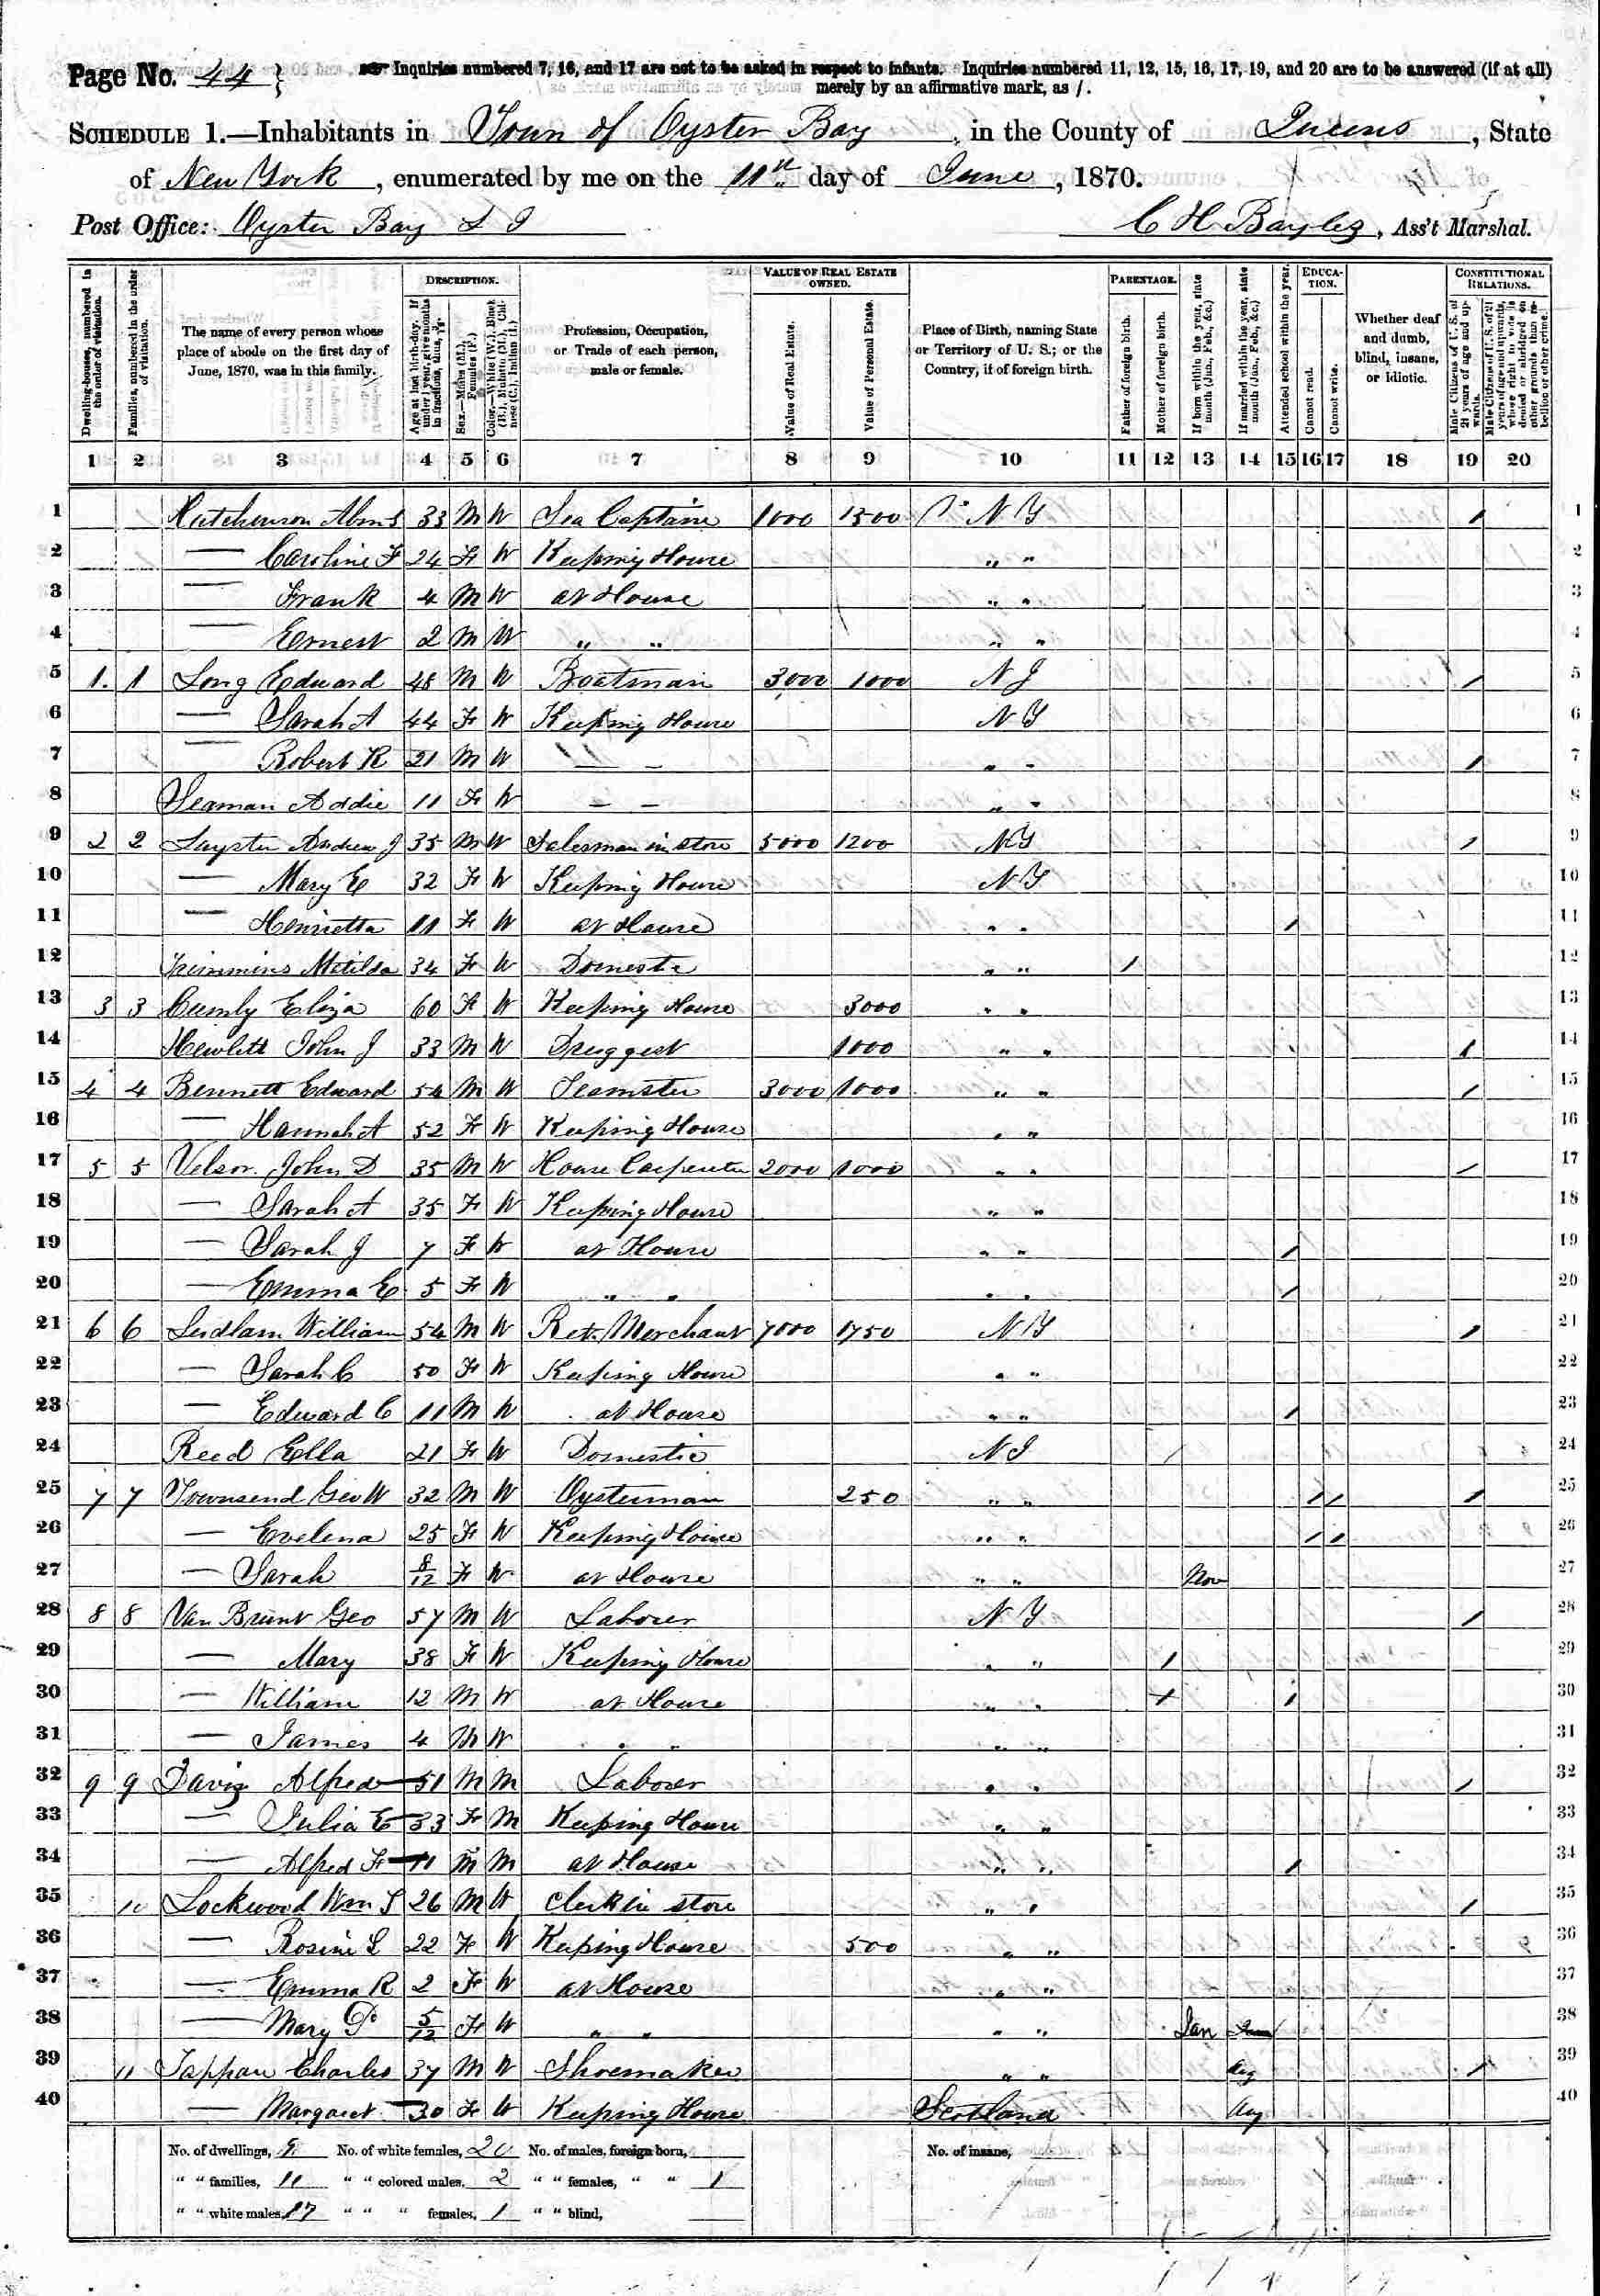 Page No. 44
Inquiries numbered 7, 16, and 17 are not to be asked in respect to infants. Inquiries numbered 11, 12, 15, 16, 17, 19, and 20 are to be answered (if at all)
merely by an affirmative mark, as /.
SCHEDULE 1.—Inhabitants in Town of Oyster Bay, in the County of Queens, State
of New York, enumerated by me on the 11th day of June, 1870.
Post Office: Oyster Bay L I C H Bayles, Ass't Marshal.
Dwelling-houses, numbered in the order of visitation.
Families, numbered in the order of visitation.
The name of every person whose place of abode on the first day of June, 1870, was in this family.
DESCRIPTION.
Age at last birth-day. If under 1 year, give months in fractions, thus, 3/12.
Sex.—Males (M.), Females (F.)
Color.—White (W.), Black (B.), Mulatto (M.), Chinese (C.), Indian (I.)
Profession, Occupation, or Trade of each person, male or female.
VALUE OF REAL ESTATE OWNED.
Value of Real Estate.
Value of Personal Estate.
Place of Birth, naming State or Territory of U. S.; or the Country, if of foreign birth.
PARENTAGE.
Father of foreign birth.
Mother of foreign birth.
If born within the year, state month (Jan., Feb., &c.)
If married within the year, state month (Jan., Feb., &c.)
Attended school within the year.
EDUCATION.
Cannot read.
Cannot write.
Whether deaf and dumb, blind, insane, or idiotic.
CONSTITUTIONAL RELATIONS.
Male Citizens of U. S. of 21 years of age and upwards.
Male Citizens of U. S. of 21 years of age and upwards, whose right to vote is denied or abridged on other grounds than rebellion or other crime.
1 2 3 4 5 6 7 8 9 10 11 12 13 14 15 16 17 18 19 20
1 Hutchinson Abm S 33 M W Sea Captain 1000 1500 N Y / 1
2 — Caroline F 24 F W Keeping House " " 2
3 — Frank 4 M W at House " " 3
4 — Ernest 2 M W " " " " 4
5 1 1 Long Edward 48 M W Boatman 3000 1000 N J / 5
6 — Sarah A 44 F W Keeping House N Y 6
7 — Robert R 21 M W — — " " / 7
8 Seaman Addie 11 F W — — " " 8
9 2 2 Layster Andrew J 35 M W Salesman in store 5000 1200 N Y / 9
10 — Mary E 32 F W Keeping House N Y 10
11 — Henrietta 11 F W at House " " / 11
12 Matilda 34 F W Domestic " " / 12
13 3 3 Eliza 60 F W Keeping House 3000 " " 13
14 Hewlett John J 33 M W Druggest 1000 " " / 14
15 4 4 Bennett Edward 54 M W Teamster 3000 1000 " " / 15
16 — Hannah A 52 F W Keeping House " " 16
17 5 5 Velsor John D 35 M W House Carpenter 2000 1000 " " / 17
18 — Sarah A 35 F W Keeping House " " 18
19 — Sarah J 7 F W at House " " / 19
20 — Emma E 5 F W " " " " / 20
21 6 6 Ludlam William 54 M W Ret. Merchant 7000 1750 N Y / 21
22 — Sarah C 50 F W Keeping House " " 22
23 — Edward C 11 M W at House " " / 23
24 Reed Ella 21 F W Domestic N J / 24
25 7 7 Townsend Geo W 32 M W Oysterman 250 " " / / / 25
26 — Evelena 25 F W Keeping House " " / / 26
27 — Sarah 8/12 F W at House " " Nov 27
28 8 8 Van Brunt Geo 57 M W Laborer N Y / 28
29 — Mary 38 F W Keeping House " " / 29
30 — William 12 M W at House " " / / 30
31 — James 4 M W " " " " 31
32 9 9 Davis Alfred 51 M M Laborer " " / 32
33 — Julia E 33 F M Keeping House " " 33
34 — Alfred F 11 M M at House " " / 34
35 10 Lockwood Wm S 26 M W Clerk in store " " / 35
36 — Rosine L 22 F W Keeping House 500 " " 36
37 — Emma R 2 F W at House " " 37
38 — Mary P 5/12 F W " " " " Jan 38
39 11 Tappan Charles 37 M W Shoemaker " " Aug / 39
40 — Margaret 30 F W Keeping House Scotland Aug 40
No. of dwellings, 9 No. of white females, 20 No. of males, foreign born, No. of insane,
" " families, 11 " " colored males, 2 " " females, " " 1
" " white males, 17 " " " females, 1 " " blind,